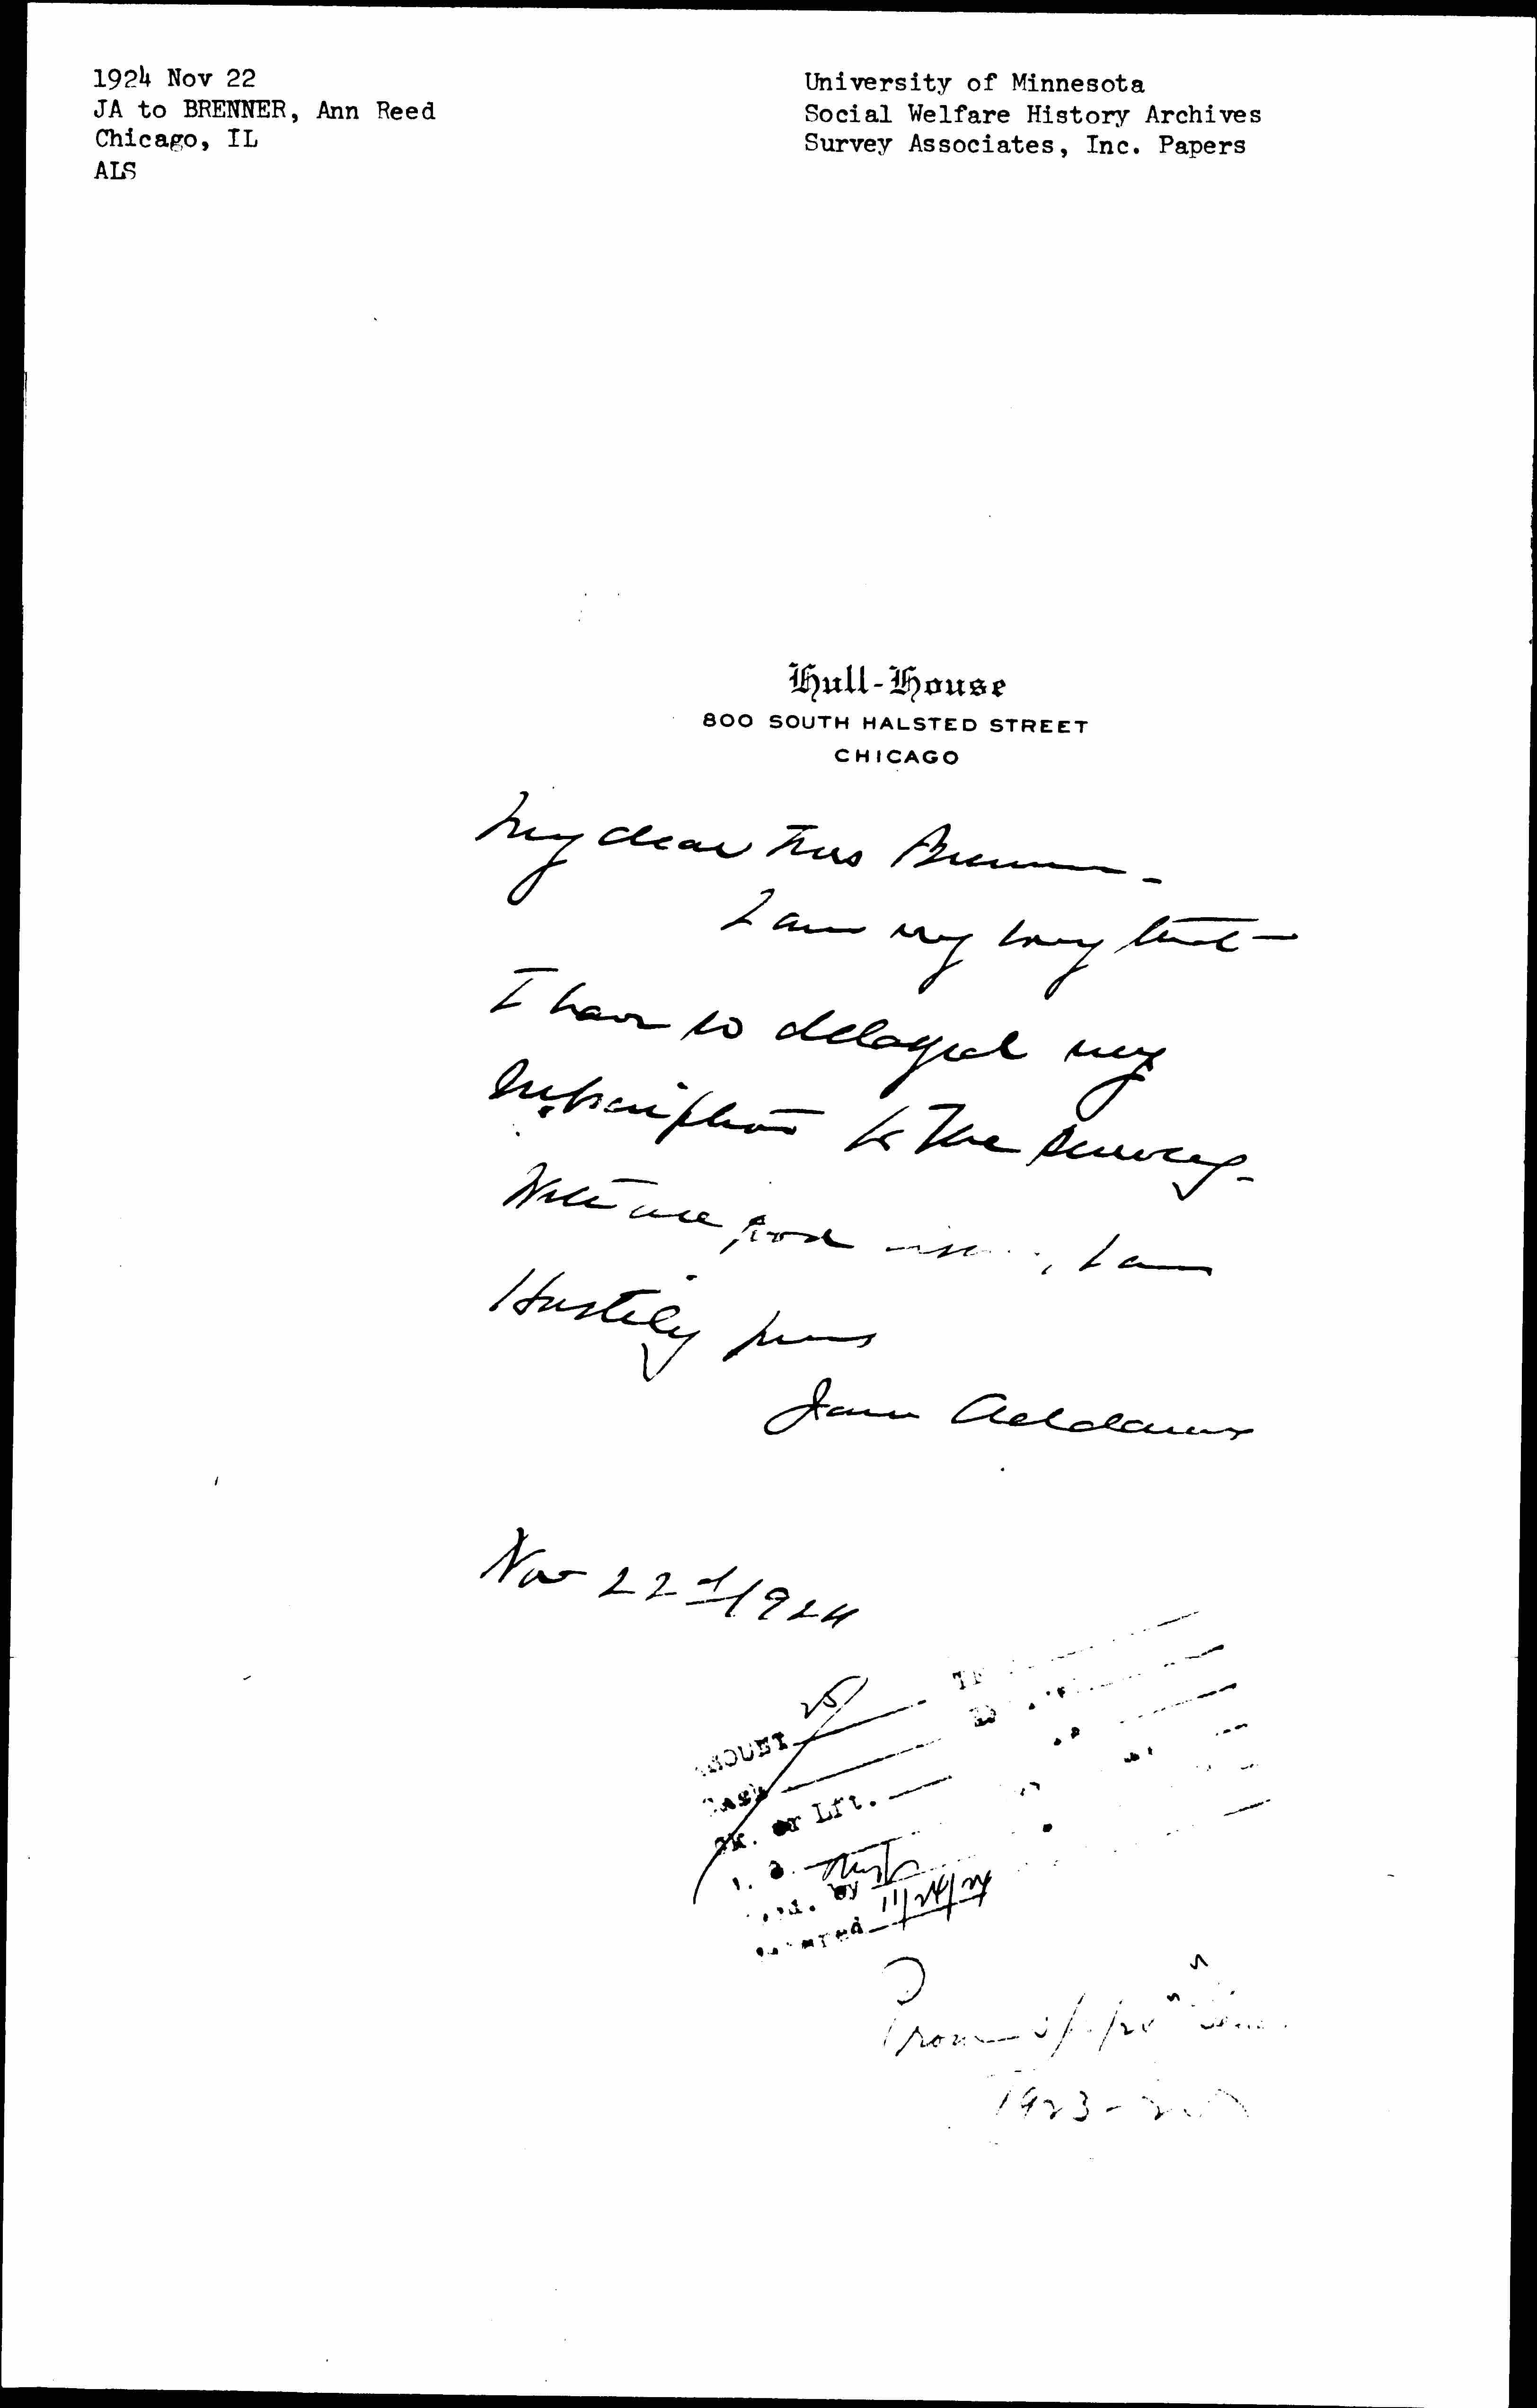 1924 Nov 22
JA to BRENNER, Ann Reed
Chicago, IL
ALS
University of Minnesota
Social Welfare History Archives
Survey Associates, Inc. Papers
Hull-House
800 SOUTH HALSTED STREET
CHICAGO
My dear Mrs Brenner -
I am very sorry that
I have so delayed my
subscription to The Survey.
With all good wishes, I am
Hastily yours
Jane Addams
Nov 22d 1924
AMOUNT 25
Cash
Ck. or Lft.
by
11/24/24
1923-